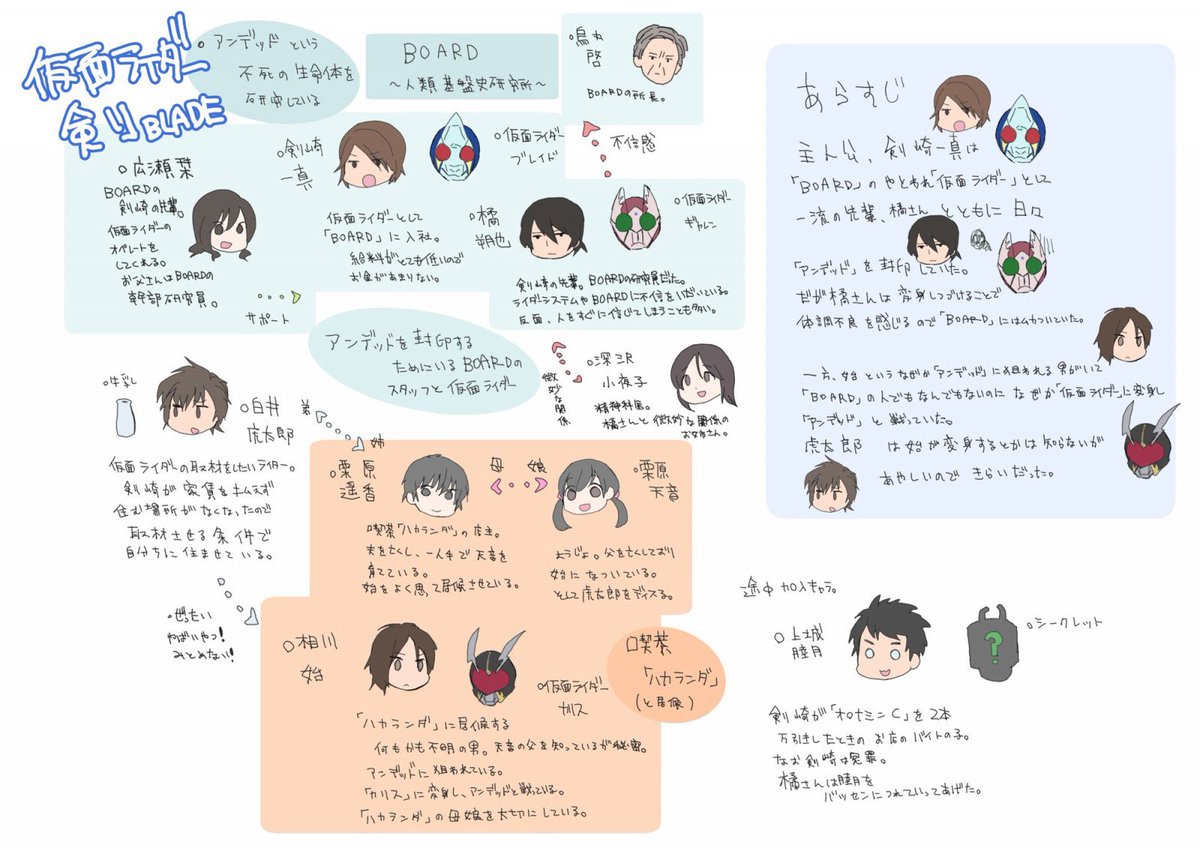 仮面ライダー
剣 BLADE
○アンデッドという
不死の生命体を
研究している
BOARD
～人類基盤史研究所～
○烏丸
啓
BOARDの所長。
○広瀬栞
BOARDの
剣崎の先輩。
仮面ライダーの
オペレートを
してくれる。
お父さんはBOARDの
幹部研究員。
サポート
○剣崎
一真
○仮面ライダー
ブレイド
仮面ライダーとして
「BOARD」に入社。
給料がとても低いので
お金があまりない。
不信感
○橘
朔也
○仮面ライダー
ギャレン
剣崎の先輩。BOARDの研究員だった。
ライダーシステムやBOARDに不信をいだいている。
反面、人をすぐに信じてしまうことも多い。
アンデッドを封印する
ためにいるBOARDの
スタッフと仮面ライダー
微妙な関係
○深沢
小夜子
精神科医。
橘さんと微妙な関係の
お姉さん。
牛乳
○白井
虎太郎
弟
姉
仮面ライダーの取材をしたいライター。
剣崎が家賃を払えず
住む場所がなくなったので
取材させる条件で
自分ちに住ませている。
○ぜったい
やばいやつ!
みとめない!
○栗原
遥香
母 娘
○栗原
天音
喫茶「ハカランダ」の店主。
夫を亡くし、一人手で天音を
育てている。
始をよく思って居候させている。
ようじょ。父を亡くしており
始になついている。
そして虎太郎をディスる。
○相川
始
○仮面ライダー
カリス
喫茶
「ハカランダ」
(と居候)
「ハカランダ」に居候する
何もかも不明の男。天音の父を知っているが秘密。
アンデッドに狙われている。
「カリス」に変身し、アンデッドと戦っている。
「ハカランダ」の母娘を大切にしている。
あらすじ
主人公、剣崎一真は
「BOARD」のやとわれ「仮面ライダー」として
一流の先輩、橘さんとともに日々
「アンデッド」を封印していた。
だが橘さんは変身しつづけることで
体調不良を感じるので「BOARD」にはムカついていた。
一方、始というなぜか「アンデッド」に狙われる男がいて
「BOARD」の人でもなんでもないのになぜか「仮面ライダー」に変身し
「アンデッド」と戦っていた。
虎太郎は始が変身するとかは知らないが
あやしいのできらいだった。
途中加入キャラ。
○上城
睦月
?
○シークレット
剣崎が「オロナミンC」を2本
万引きしたときのお店のバイトの子。
なお剣崎は冤罪。
橘さんは睦月を
バッセンにつれていってあげた。